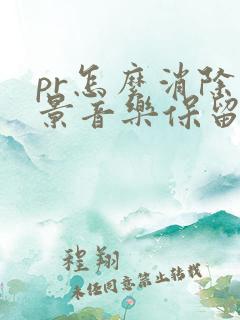 pr怎麼消除
景音樂保留
程翔
未任同意禁止转载